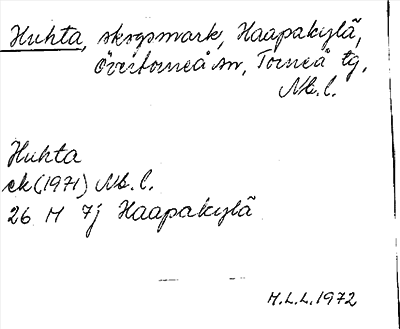 Huhta, skogsmark, Haapakylä,
Övertorneå sn, Torneå tg,
Nb. l.
Huhta
ek (1971) Nb. l.
26 M 7j Haapakylä
H.L.L. 1972